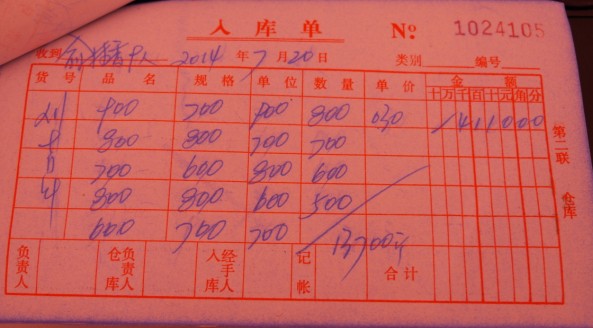 入库单 № 1024105
收到 2014年7月20日 类别 编号
货号 品名 规格 单位 数量 单价 金额
十万千百十元角分
400 700 400 800 030 1411000
800 800 700 700
700 600 800 600
800 800 600 500
600 700 700 13700元
第二联 仓库
负责人 仓库负责人 经手人入库 记帐 合计